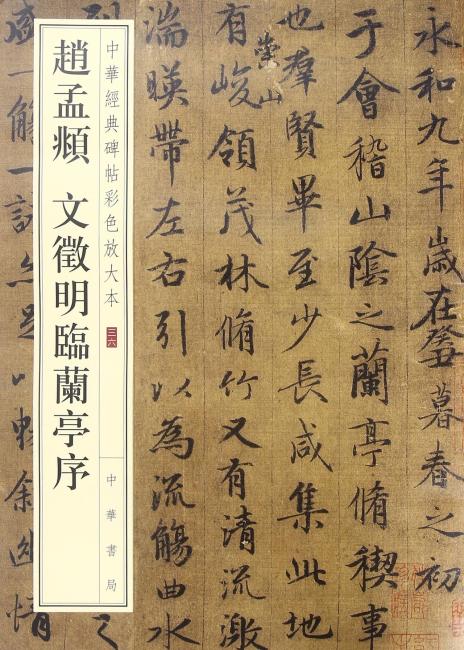 永和九年歲在癸丑暮春之初
于會稽山陰之蘭亭脩禊事
也羣賢畢至少長咸集此地
崇山
有峻領茂林脩竹又有清流激
湍暎帶左右引以為流觴曲水
中華經典碑帖彩色放大本 三六
中華書局
趙孟頫 文徵明臨蘭亭序
盛一觴一詠亦足以暢叙幽情